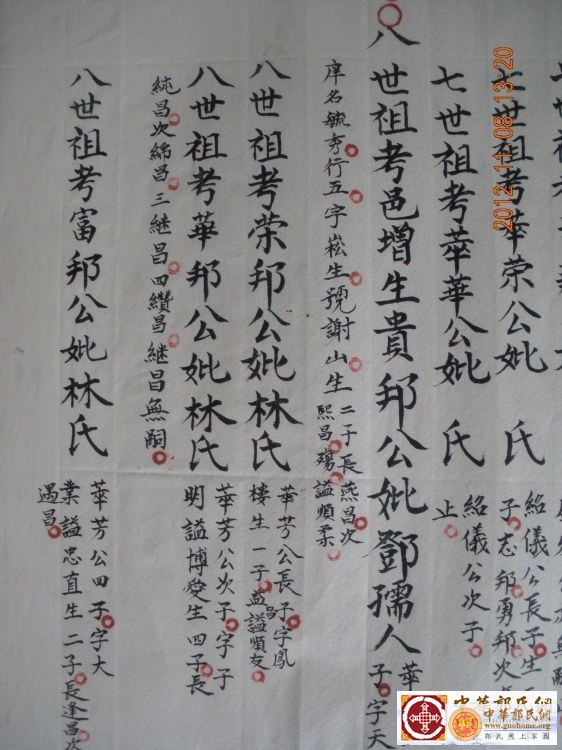 七世祖考華榮公妣 氏
紹儀公長子生
子志邦勇邦次
七世祖考華華公妣 氏
紹儀公次子
止
八世祖考邑增生貴邦公妣鄧孺人
華
子字天
庠名毓秀行五字崧生號謝山生二子長燕昌次
熙昌殤謚順柔
八世祖考荣邦公妣林氏
華芳公長子字鳳
樓生一子益昌謚順友
八世祖考華邦公妣林氏
華芳公次子字子
明謚博愛生四子長
純昌次綿昌三继昌四纘昌继昌無嗣
八世祖考富邦公妣林氏
華芳公四子字大
業謚忠直生二子長逢昌次
遇昌
2012-11-08 13:20
中華郭氏網
www.guohome.org
郭氏網上家園